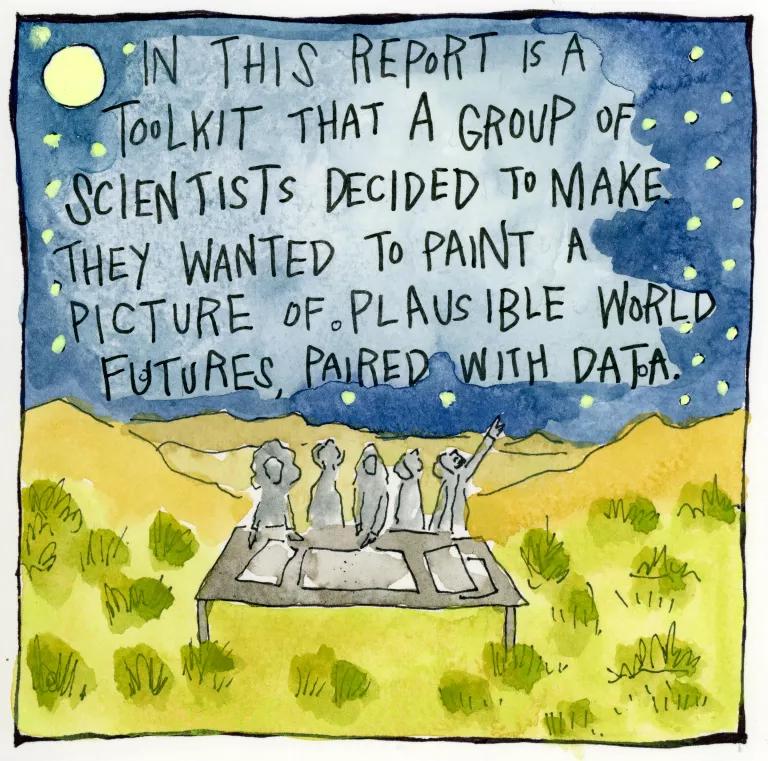 IN THIS REPORT IS A
TOOLKIT THAT A GROUP OF
SCIENTISTS DECIDED TO MAKE.
THEY WANTED TO PAINT A
PICTURE OF PLAUSIBLE WORLD
FUTURES, PAIRED WITH DATA.